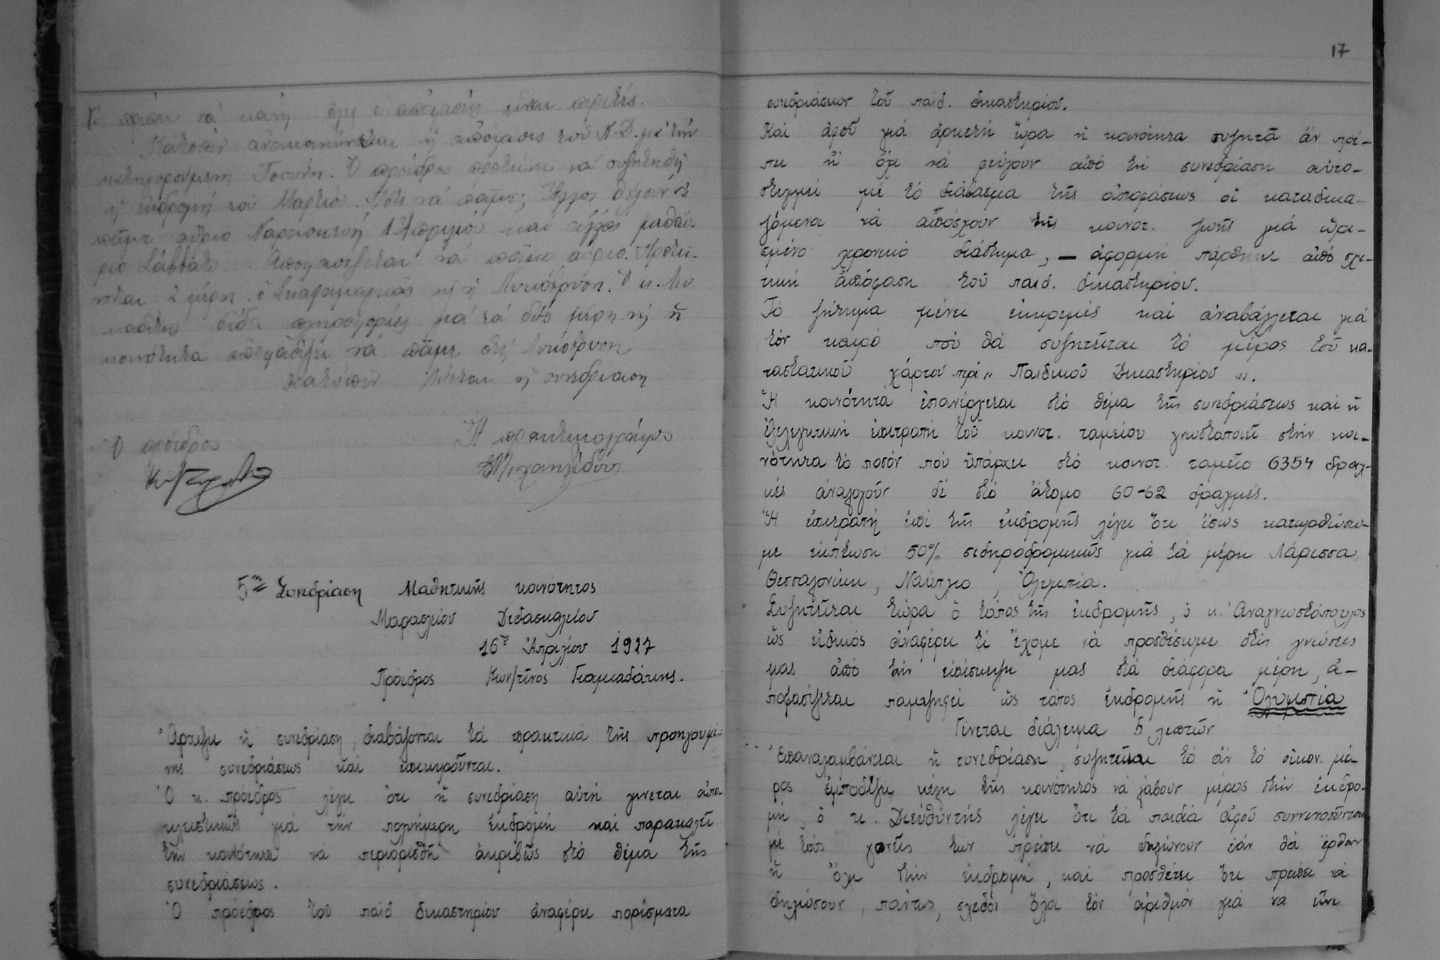 νά κάνῃ
Κατόπιν ἀνακοινώνεται ἡ ἀπόφασις τοῦ Π.Δ. μὲ τὴν
Ὁ πρόεδρος προτείνει νά συζητηθῇ
ἡ ἐκδρομή τοῦ Μαρτίου. Ποῦ νά πᾶμε; Ἄλλοι θέλουν νά
Παρασκευή 1 Ἀπριλίου καί ἄλλοι
Σάββατο. Ἀποφασίζεται νά πᾶμε αὔριο. Προτεί-
νονται 2 μέρη
δίδει πληροφορίες γιά τά δύο μέρη κι ἡ
κοινότητα ἀποφασίζει νά πᾶμε στή
Κατόπιν λύεται ἡ συνεδρίαση
Ὁ πρόεδρος
Ἡ πρακτικογράφος
5η Συνεδρίαση Μαθητικῆς κοινότητος
Μαρασλείου Διδασκαλείου
16η Ἀπριλίου 1927
Πρόεδρος Κων/τῖνος
Ἄρχισε ἡ συνεδρίαση, διαβάζονται τά πρακτικα τῆς προηγουμέ-
νης συνεδριάσεως καί ἐπικυροῦνται.
Ὁ κ. πρόεδρος λέγει ὅτι ἡ συνεδρίαση αὐτή γινεται ἀπο-
κλειστικῶς γιά την πολυήμερη ἐκδρομή καί παρακαλεῖ
τήν κοινότητα να περιορισθῇ ἀκριβῶς στό θέμα τῆς
συνεδριάσεως.
Ὁ πρόεδρος τοῦ παιδ δικαστηρίου ἀναφέρει πορίσματα
17
συνεδριάσεων τοῦ παιδ. δικαστηρίου.
Καί ἀφοῦ γιά ἀρκετή ὥρα ἡ κοινότητα συζητᾶ ἄν πρέ-
πει ἤ ὄχι νά φεύγουν ἀπό τή συνεδρίαση αὐτο-
στιγμεί μέ τό διάβασμα τῆς ἀποφάσεως οἱ καταδικα-
ζόμενοι νά ἀπέχουν τῆς κοινοτ. ζωῆς γιά ὡρι-
σμένο χρονικό διάστημα, — ἀφορμή πάρθηκε ἀπό σχε-
τική ἀπόφαση τοῦ παιδ. δικαστηρίου.
Τό ζήτημα μένει ἐκκρεμές καί ἀναβάλλεται γιά
τόν καιρό πού θά συζητεῖται τό μέρος τοῦ κα-
ταστατικοῦ χάρτου περί „ Παιδικοῦ Δικαστηρίου „.
Ἡ κοινότητα ἐπανέρχεται στό θέμα τῆς συνεδριάσεως καί ἡ
ἐλεγκτική ἐπιτροπή τοῦ κοινοτ. ταμείου γνωστοποιεῖ στήν κοι-
νότητα τό ποσόν πού ὑπάρχει στό κοινοτ. ταμεῖο 6354 δραχ-
μές ἀναλογοῦν δέ στό ἄτομο 60-62 δραχμές.
Ἡ ἐπιτροπή ἐπί τῆς ἐκδρομῆς λέγει ὅτι ἴσως κατορθώσω-
με ἔκπτωση 50% σιδηροδρομικῶς γιά τά μέρη Λάρισσα,
Θεσσαλονίκη, Ναύπλιο, Ὀλυμπία.
Συζητεῖται τώρα ὁ τόπος τῆς ἐκδρομῆς, ὁ κ. Ἀναγνωστόπουλος
ὡς εἰδικός ἀναφέρει τί ἔχομε νά προσθέσωμε στίς γνώσεις
μας ἀπό τήν ἐπίσκεψη μας στά διάφορα μέρη, ἀ-
ποφασίζεται παμψηφεί ὡς τόπος ἐκδρομῆς ἡ Ὀλυμπία
Γίνεται διάλειμα 5 λεπτῶν
Ἐπαναλαμβάνεται ἡ συνεδρίαση, συζητεῖται τό ἄν τό οἰκον. μέ-
ρος ἐμποδίζει μέλη τῆς κοινότητος νά λάβουν μέρος στήν ἐκδρο-
μή, ὁ κ. Διευθυντής λέγει ὅτι τά παιδιά ἀφοῦ συνεννοηθοῦν
μέ τούς γονεῖς των πρέπει νά δηλώσουν ἐάν θά ἔρθουν
ἤ ὄχι στήν ἐκδρομή, καί προσθέτει ὅτι πρέπει νά
δηλώσουν, πάντως, σχεδόν ὅλοι τόν ἀριθμόν γιά να